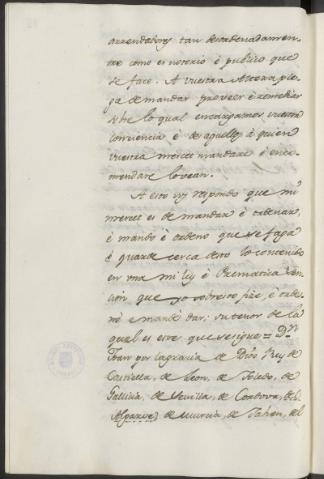 arrendadores tan desordenadamen-
te como es notorio è publico que
se face. A vuestra Alteza ple-
ga de mandar proveer è remediar
sobre lo qual encargamos vuestra
conciencia è de aquellos à quien
vuestra merced mandare è enco-
mendare lo vean.
A esto vos respondo que mi
merced es de mandar è ordenar,
è mando è ordeno que se faga
è guarde cerca desto lo contenido
en una mi ley è Prematica San-
cion que yo sobresto fice, è orde-
nè e mandè dar; su tenor de la
qual es este que se sigue = Dn
Joan por la gracia de Dios Rey de
Castilla, de Leon, de Toledo, de
Gallicia, de Sevilla, de Cordova, del
Algarve, de Murcia, de Jahen, del